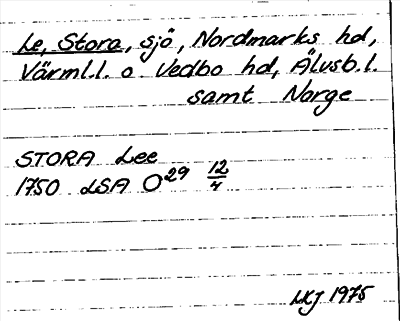 Le, Stora, sjö, Nordmarks hd,
Värml.l. o. Vedbo hd, Älvsb.l.
samt Norge
STORA Lee
1750 LSA O29 12/4
LKJ 1975